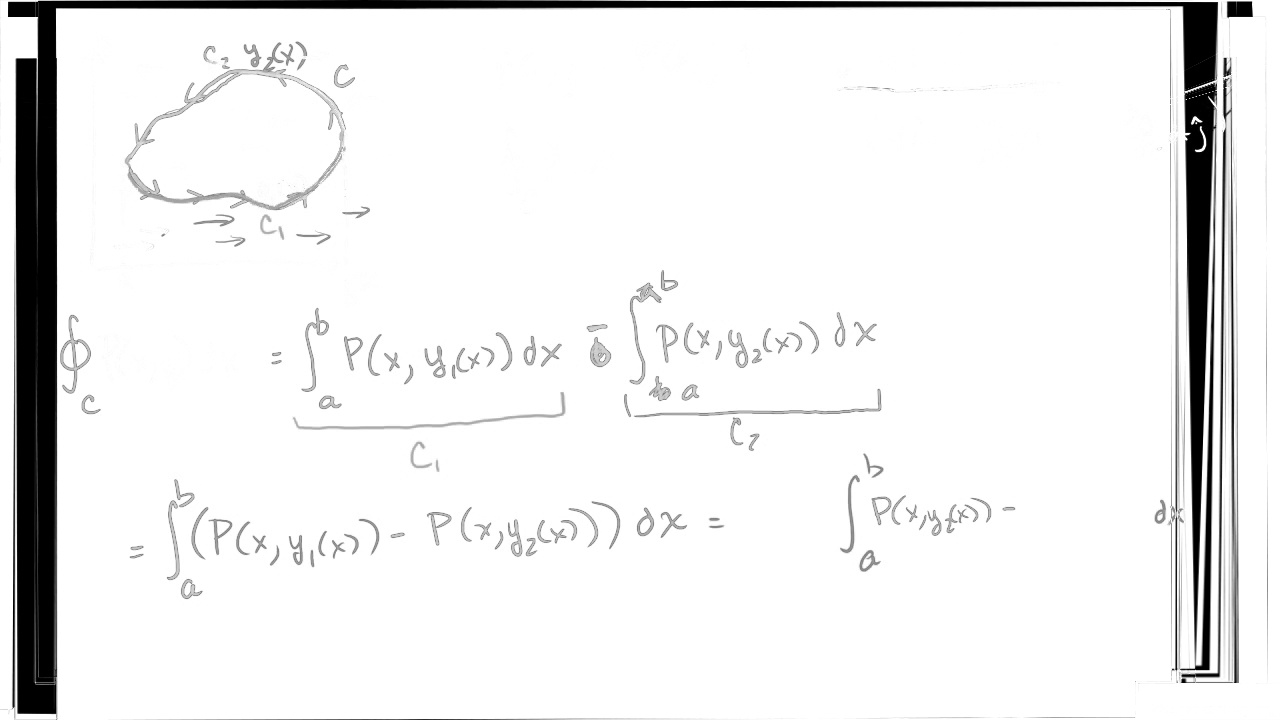 C₂ y₂(x)
C
ĵ
C₁
∮_C = ∫_a^b P(x, y₁(x)) dx - ∫_a^b P(x, y₂(x)) dx
C₁ C₂
= ∫_a^b (P(x, y₁(x)) - P(x, y₂(x))) dx = ∫_a^b P(x, y₂(x)) - dx